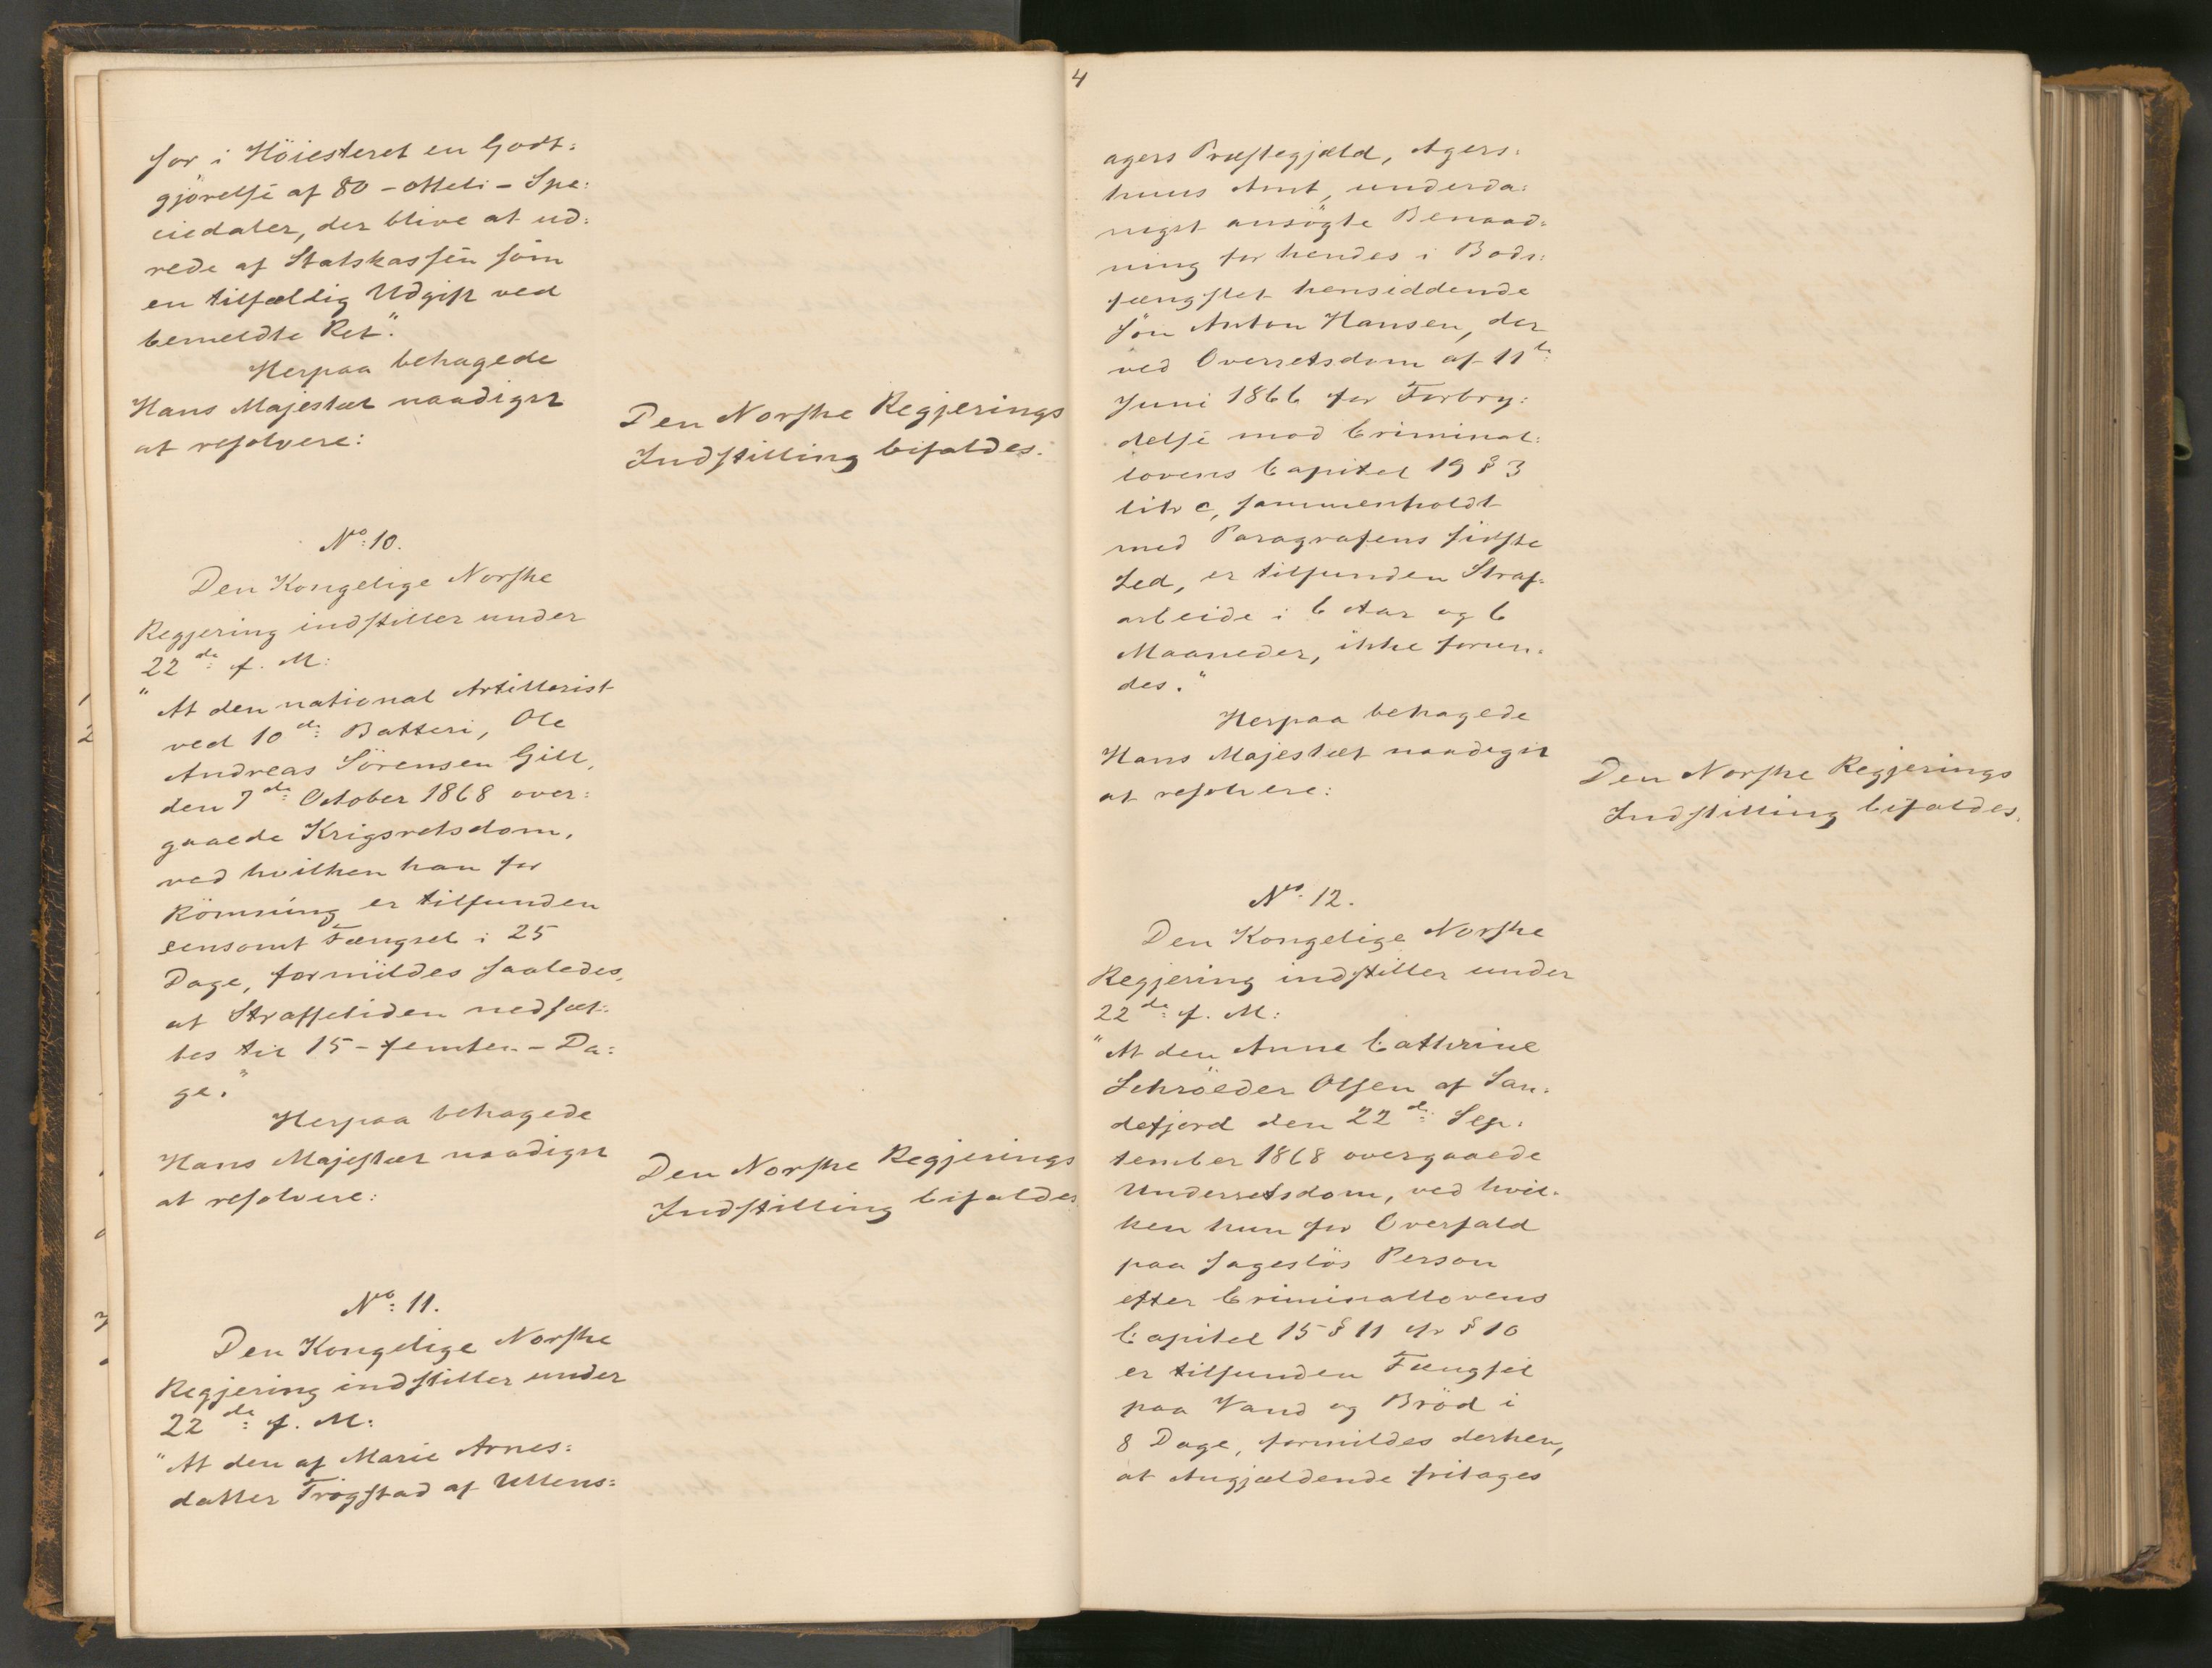 for i Höiesteret en Godt:
gjörelse af 80 - otteti - Spe:
ciedaler, der blive at ud:
rede af Statskassen som
en tilfældig Udgift ved
bemeldte Ret."
Herpaa behagede
Hans Majestæt naadigst
at resolvere:
Den Norske Regjerings
Indstilling bifaldes.
No: 10.
Den Kongelige Norske
Regjering indstiller under
22de: f. M:
"At den national Artillerist
ved 10de: Batteri, Ole
Andreas Sörensen Gill,
den 7de: October 1868 over:
gaaede Krigsretsdom,
ved hvilken han for
Römning er tilfunden
eensomt Fængsel i 25
Dage, formildes saaledes,
at Straffetiden nedsæt:
tes til 15 - femten - Da:
ge."
Herpaa behagede
Hans Majestæt naadigst
at resolvere:
Den Norske Regjerings
Indstilling bifaldes
No: 11.
Den Kongelige Norske
Regjering indstiller under
22de: f. M:
"At den af Marie Arnes:
datter Trögstad af Ullens:
4
agers Præstegjæld, Agers:
huus Amt, underda:
nigst ansögte Benaad:
ning for hendes i Bods:
fængslet hensiddende
Sön Anton Hansen, der
ved Overretsdom af 11te
Juni 1866 for Forbry:
delse mod Criminal:
lovens Capitel 19 § 3
litr c, sammenholdt
med Paragrafens sidste
Led, er tilfunden Straf:
arbeide i 6 Aar og 6
Maaneder, ikke forun:
des."
Herpaa behagede
Hans Majestæt naadigst
at resolvere:
Den Norske Regjerings
Indstilling bifaldes.
No: 12.
Den Kongelige Norske
Regjering indstiller under
22de: f. M:
"At den Anne Cathrine
Schröeder Olsen af San:
defjord den 22de: Sep:
tember 1868 overgaaede
Underretsdom, ved hvil:
ken hun for Overfald
paa sageslös Person
efter Criminallovens
Capitel 15 § 11 cfr § 10
er tilfunden Fængsel
paa Vand og Bröd i
8 Dage, formildes derhen,
at Angjældende fritages